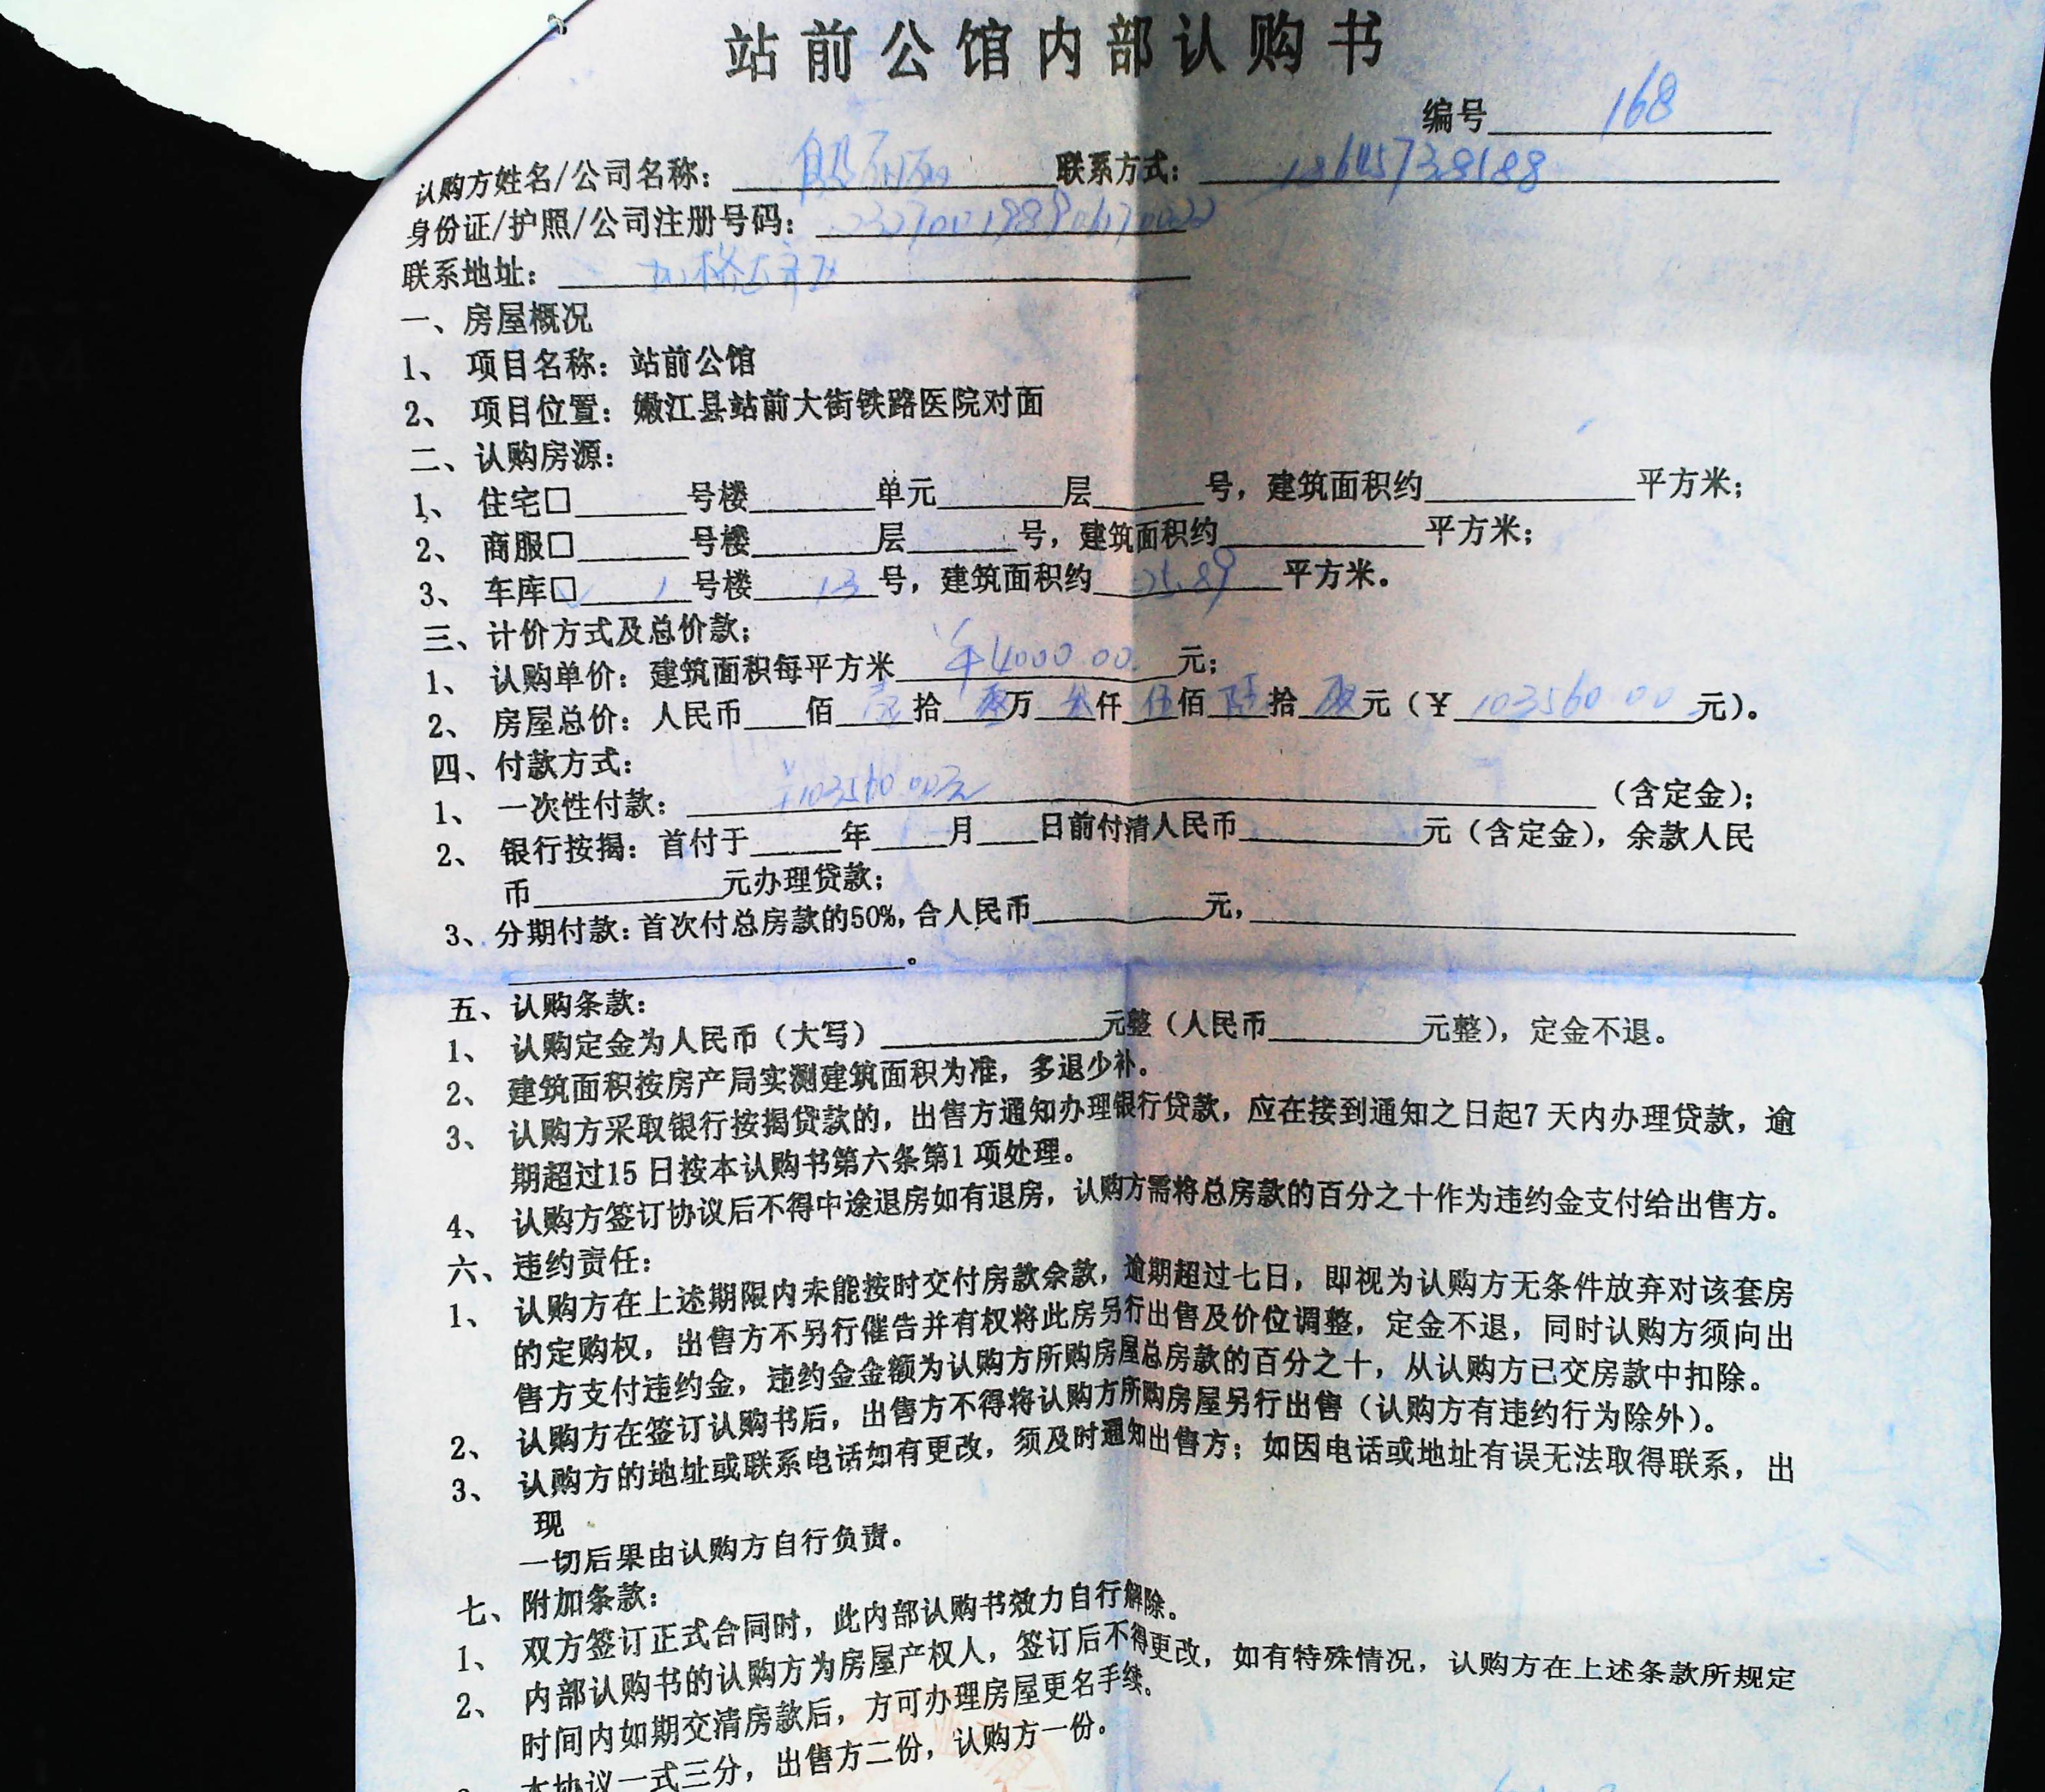 站前公馆内部认购书
编号 168
认购方姓名/公司名称： 联系方式：
身份证/护照/公司注册号码：
联系地址：
一、房屋概况
1、 项目名称：站前公馆
2、 项目位置：嫩江县站前大街铁路医院对面
二、认购房源：
1、 住宅□______号楼______单元______层______号，建筑面积约______平方米；
2、 商服□______号楼______层______号，建筑面积约______平方米；
3、 车库□ 1 号楼 13 号，建筑面积约 25.89 平方米。
三、计价方式及总价款；
1、 认购单价：建筑面积每平方米 ¥4000.00 元；
2、 房屋总价：人民币____佰 壹 拾 零 万 叁 仟 伍 佰 陆 拾 零 元（¥ 103560.00 元）。
四、付款方式：
1、 一次性付款： ¥103560.00元 （含定金）；
2、 银行按揭：首付于____年____月____日前付清人民币______元（含定金），余款人民
币______元办理贷款；
3、分期付款：首次付总房款的50%，合人民币______元，______
______。
五、认购条款：
1、 认购定金为人民币（大写）______元整（人民币______元整），定金不退。
2、 建筑面积按房产局实测建筑面积为准，多退少补。
3、 认购方采取银行按揭贷款的，出售方通知办理银行贷款，应在接到通知之日起7 天内办理贷款，逾
期超过15 日按本认购书第六条第1 项处理。
4、 认购方签订协议后不得中途退房如有退房，认购方需将总房款的百分之十作为违约金支付给出售方。
六、违约责任：
1、 认购方在上述期限内未能按时交付房款余款，逾期超过七日，即视为认购方无条件放弃对该套房
的定购权，出售方不另行催告并有权将此房另行出售及价位调整，定金不退，同时认购方须向出
售方支付违约金，违约金金额为认购方所购房屋总房款的百分之十，从认购方已交房款中扣除。
2、 认购方在签订认购书后，出售方不得将认购方所购房屋另行出售（认购方有违约行为除外）。
3、 认购方的地址或联系电话如有更改，须及时通知出售方；如因电话或地址有误无法取得联系，出
现
一切后果由认购方自行负责。
七、附加条款：
1、 双方签订正式合同时，此内部认购书效力自行解除。
2、 内部认购书的认购方为房屋产权人，签订后不得更改，如有特殊情况，认购方在上述条款所规定
时间内如期交清房款后，方可办理房屋更名手续。
本协议一式三分，出售方二份，认购方一份。